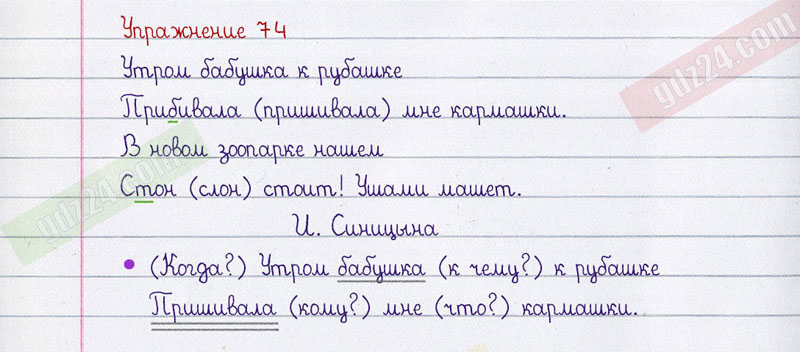 Упражнение 74
Утром бабушка к рубашке
Прибивала (пришивала) мне кармашки.
В новом зоопарке нашем
Стон (слон) стоит! Ушами машет.
И. Синицына
• (Когда?) Утром бабушка (к чему?) к рубашке
Пришивала (кому?) мне (что?) кармашки.
gdz24.com
gdz24.com